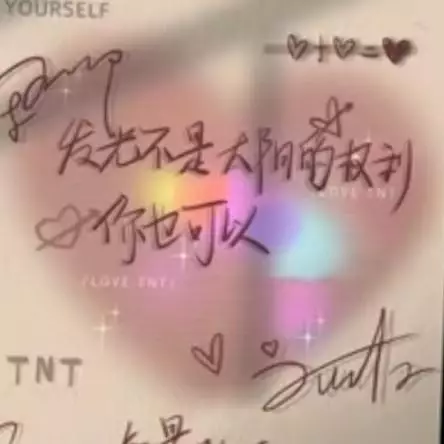 YOURSELF
♡+♡=♥
发光不是太阳的权利
LOVE TNT
你也可以
(LOVE TNT)
TNT